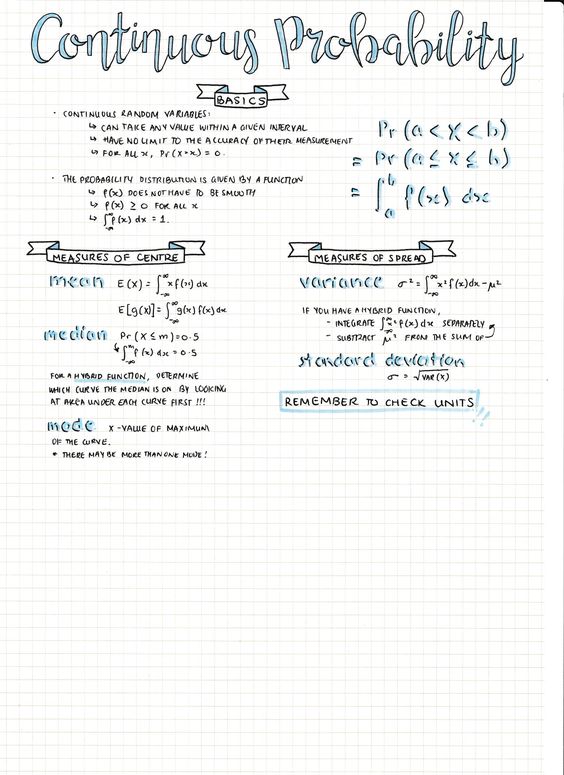 Continuous Probability
BASICS
· CONTINUOUS RANDOM VARIABLES:
↳ CAN TAKE ANY VALUE WITHIN A GIVEN INTERVAL
↳ HAVE NO LIMIT TO THE ACCURACY OF THEIR MEASUREMENT
↳ FOR ALL x, Pr(X=x) = 0.
· THE PROBABILITY DISTRIBUTION IS GIVEN BY A FUNCTION
↳ f(x) DOES NOT HAVE TO BE SMOOTH
↳ f(x) ≥ 0 FOR ALL x
↳ ∫_{-∞}^{∞} f(x) dx = 1.
Pr(a < X < b)
= Pr(a ≤ X ≤ b)
= ∫_a^b f(x) dx
MEASURES OF CENTRE
mean E(X) = ∫_{-∞}^{∞} x f(x) dx
E[g(X)] = ∫_{-∞}^{∞} g(x) f(x) dx
median Pr(X ≤ m) = 0.5
↳ ∫_{-∞}^{m} f(x) dx = 0.5
FOR A HYBRID FUNCTION, DETERMINE
WHICH CURVE THE MEDIAN IS ON BY LOOKING
AT AREA UNDER EACH CURVE FIRST !!!
mode X-VALUE OF MAXIMUM
OF THE CURVE.
* THERE MAY BE MORE THAN ONE MODE!
MEASURES OF SPREAD
variance σ² = ∫_{-∞}^{∞} x² f(x) dx - μ²
IF YOU HAVE A HYBRID FUNCTION,
- INTEGRATE ∫_{-∞}^{∞} x² f(x) dx SEPARATELY
- SUBTRACT μ² FROM THE SUM OF
standard deviation
σ = √VAR(X)
REMEMBER TO CHECK UNITS
!!!